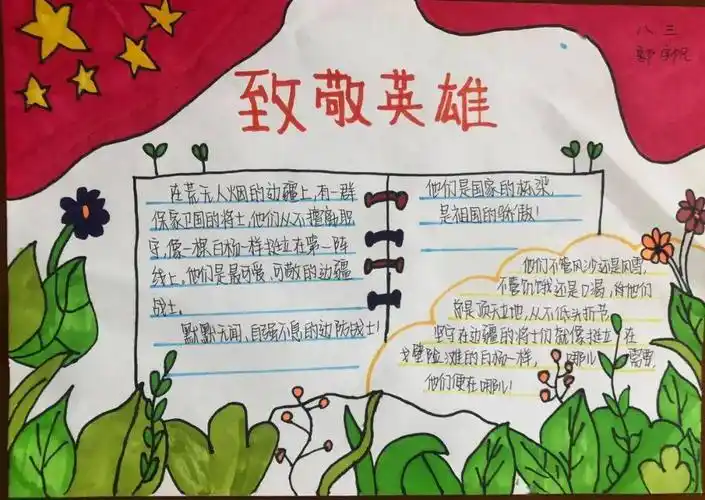 八三
致敬英雄
在荒无人烟的边疆上,有一群
保家卫国的将士,他们从不擅离职
守,像一棵白杨一样挺立在第一阵
线上,他们是最可爱、可敬的边疆
战士。
默默无闻、自强不息的边防战士!
他们是国家的栋梁,
是祖国的骄傲!
他们不管风沙还是风雪,
不管饥饿还是口渴,他们
总是顶天立地,从不低头折节
坚守在边疆的将士们就像挺立在
戈壁滩的白杨一样,哪儿需要
他们便在哪儿!